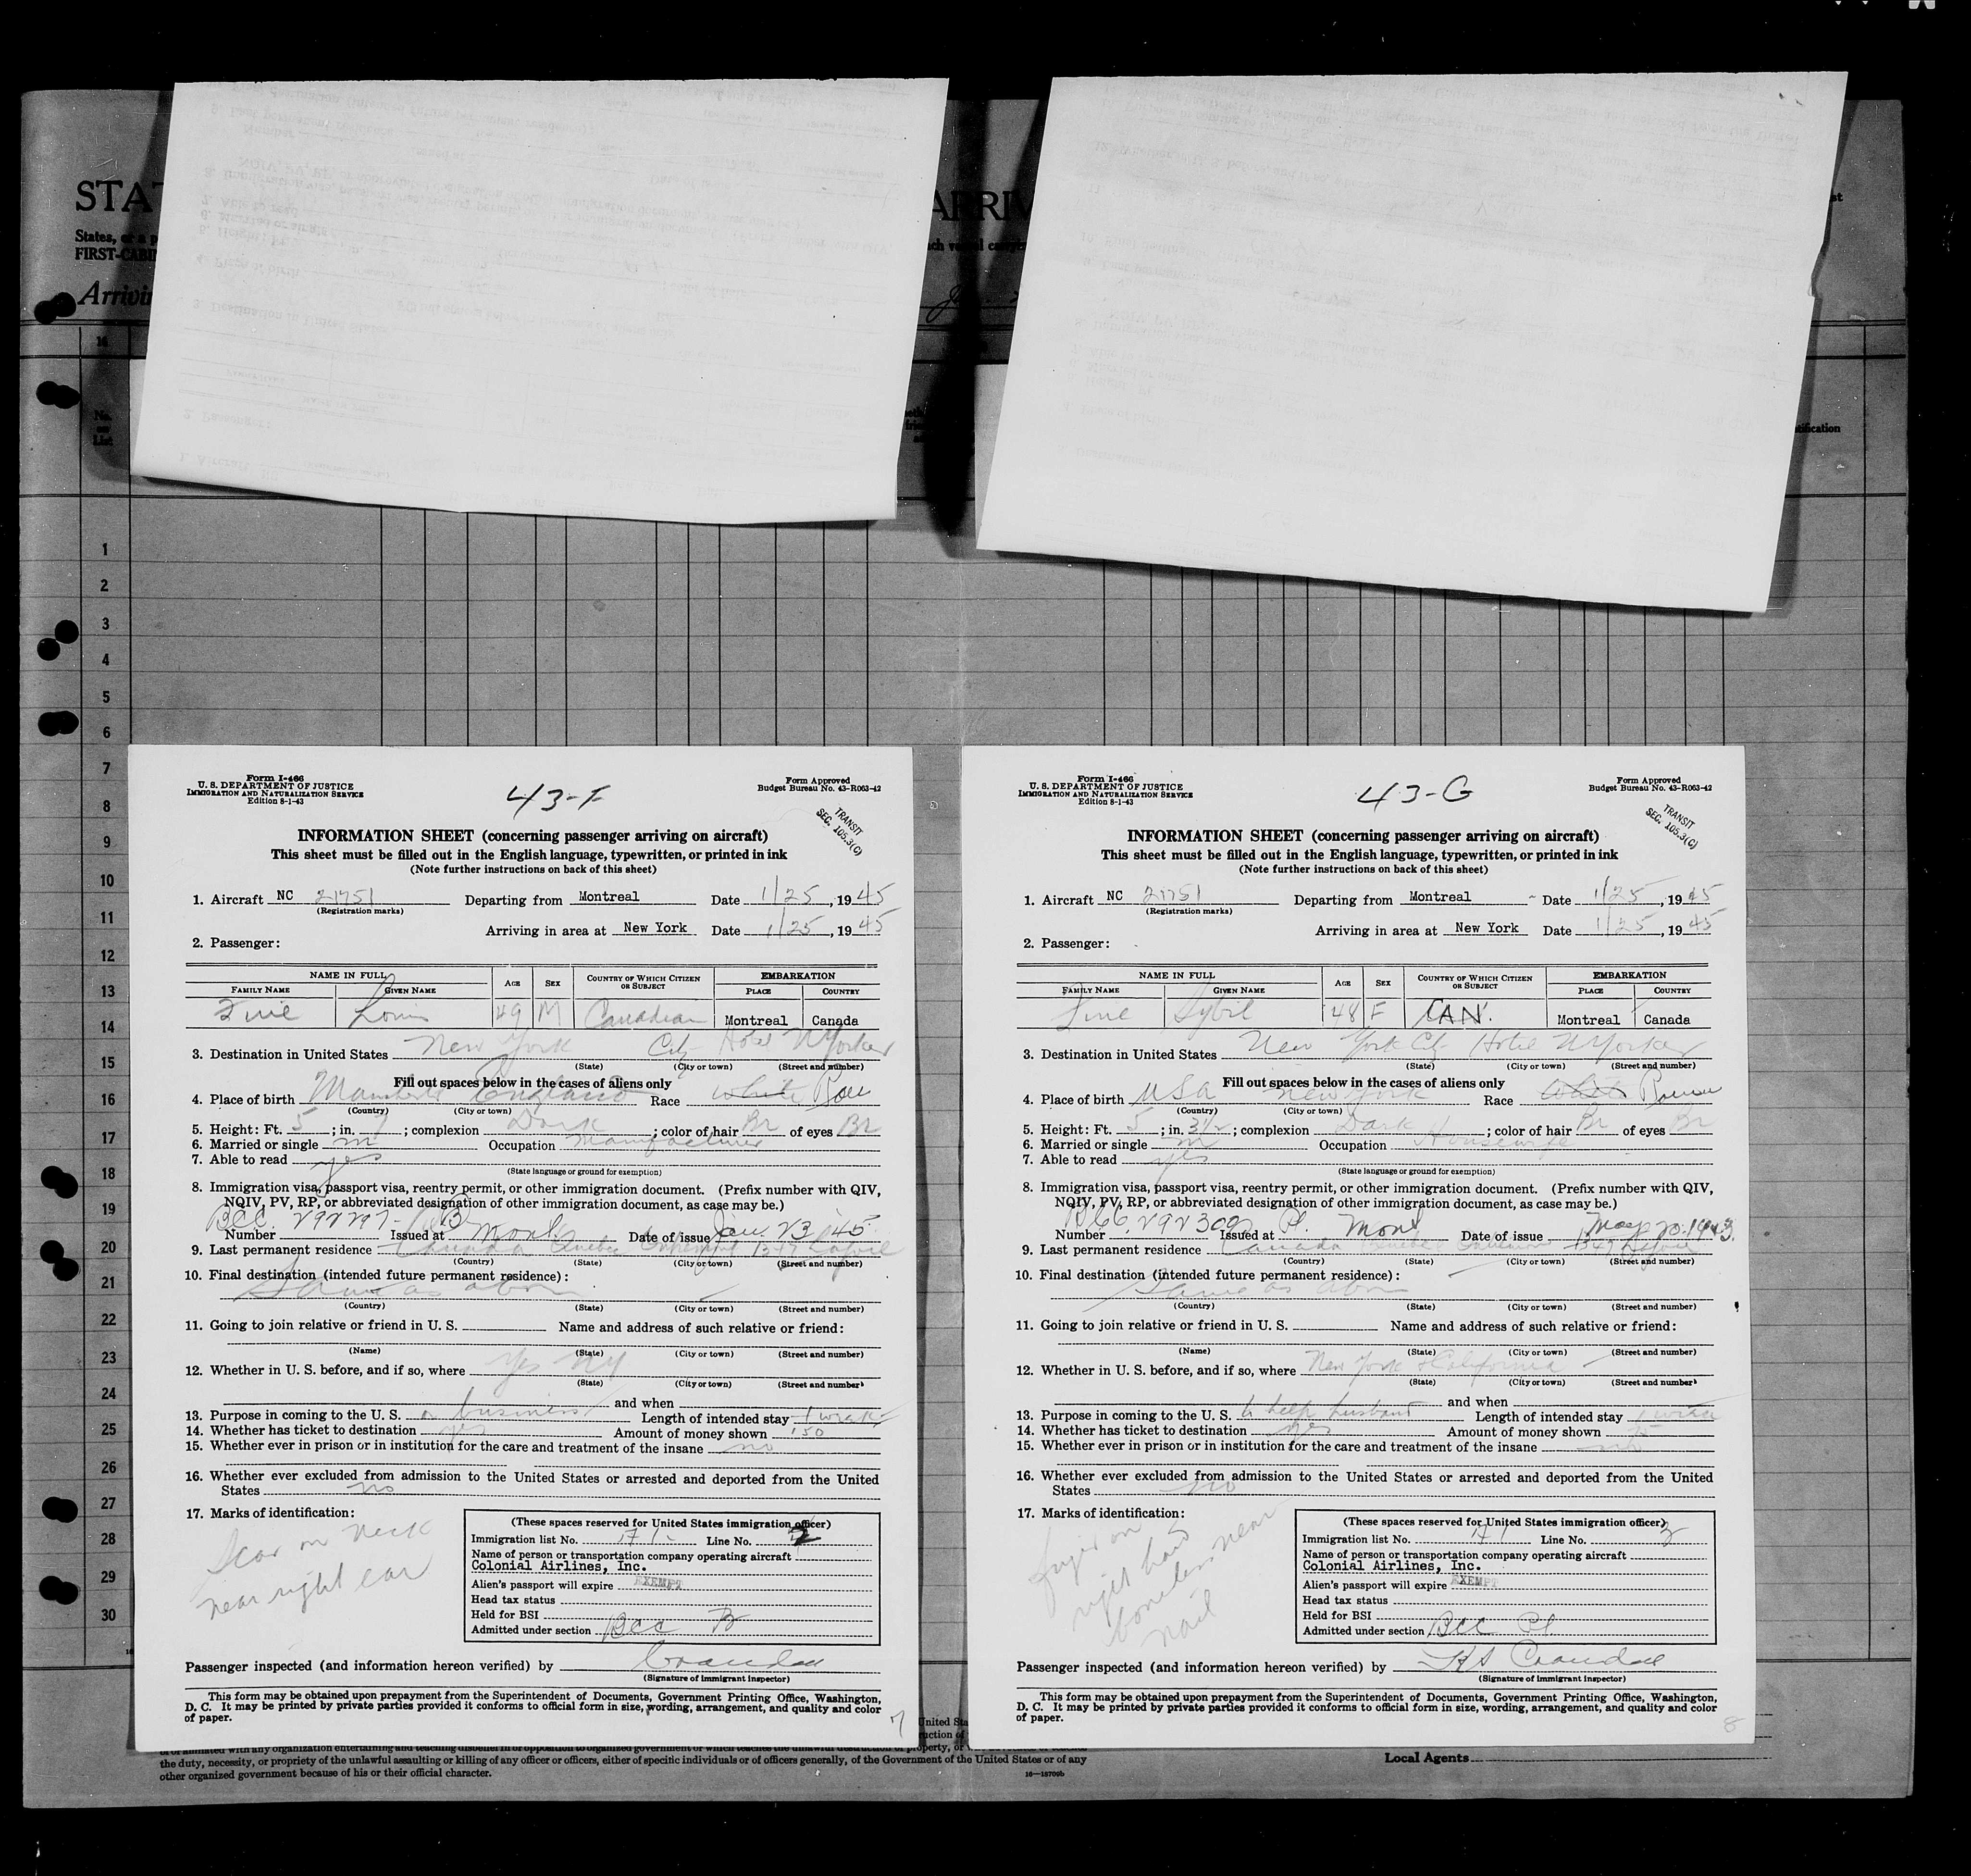 STA
ARRIV
States, or a p
ch vessel carry
FIRST-CABIN
Arrivin
No.
on
List
1
2
3
4
5
6
7
8
9
10
11
12
13
14
15
16
17
18
19
20
21
22
23
24
25
26
27
28
29
30
Form I-466
U. S. DEPARTMENT OF JUSTICE
IMMIGRATION AND NATURALIZATION SERVICE
Edition 8-1-43
43-F
Form Approved
Budget Bureau No. 43-R063-42
TRANSIT
SEC. 105.3(C)
INFORMATION SHEET (concerning passenger arriving on aircraft)
This sheet must be filled out in the English language, typewritten, or printed in ink
(Note further instructions on back of this sheet)
1. Aircraft NC 21751 Departing from Montreal Date 1/25, 1945
(Registration marks)
Arriving in area at New York Date 1/25, 1945
2. Passenger:
NAME IN FULL AGE SEX COUNTRY OF WHICH CITIZEN OR SUBJECT EMBARKATION
FAMILY NAME GIVEN NAME PLACE COUNTRY
Fine Louis 49 M Canadian Montreal Canada
3. Destination in United States New York City Hotel NYorker
(State) (City or town) (Street and number)
Fill out spaces below in the cases of aliens only
4. Place of birth England Race white
(Country) (City or town)
5. Height: Ft. 5; in. 7; complexion Dark; color of hair Br of eyes Br
6. Married or single m Occupation Manufacturer
7. Able to read yes
(State language or ground for exemption)
8. Immigration visa, passport visa, reentry permit, or other immigration document. (Prefix number with QIV,
NQIV, PV, RP, or abbreviated designation of other immigration document, as case may be.)
BCC. 292297- B
Number Issued at Mont. Date of issue Jan. 23 '45
9. Last permanent residence Canada Quebec 1347
(Country) (State) (City or town) (Street and number)
10. Final destination (intended future permanent residence):
Same as above
(Country) (State) (City or town) (Street and number)
11. Going to join relative or friend in U. S. Name and address of such relative or friend:
(Name) (State) (City or town) (Street and number)
12. Whether in U. S. before, and if so, where yes NY
(State) (City or town) (Street and number)
and when
13. Purpose in coming to the U. S. business Length of intended stay 1 week
14. Whether has ticket to destination yes Amount of money shown 150
15. Whether ever in prison or in institution for the care and treatment of the insane no
16. Whether ever excluded from admission to the United States or arrested and deported from the United
States no
17. Marks of identification:
Scar on neck
near right ear
(These spaces reserved for United States immigration officer)
Immigration list No. A 1 Line No. 2
Name of person or transportation company operating aircraft
Colonial Airlines, Inc.
Alien's passport will expire EXEMPT
Head tax status
Held for BSI
Admitted under section BCC B
Passenger inspected (and information hereon verified) by Crandall
(Signature of immigrant inspector)
This form may be obtained upon prepayment from the Superintendent of Documents, Government Printing Office, Washington,
D. C. It may be printed by private parties provided it conforms to official form in size, wording, arrangement, and quality and color
of paper.
7
Form I-466
U. S. DEPARTMENT OF JUSTICE
IMMIGRATION AND NATURALIZATION SERVICE
Edition 8-1-43
43-G
Form Approved
Budget Bureau No. 43-R063-42
TRANSIT
SEC. 105.3(C)
INFORMATION SHEET (concerning passenger arriving on aircraft)
This sheet must be filled out in the English language, typewritten, or printed in ink
(Note further instructions on back of this sheet)
1. Aircraft NC 21751 Departing from Montreal Date 1/25, 1945
(Registration marks)
Arriving in area at New York Date 1/25, 1945
2. Passenger:
NAME IN FULL AGE SEX COUNTRY OF WHICH CITIZEN OR SUBJECT EMBARKATION
FAMILY NAME GIVEN NAME PLACE COUNTRY
Fine Sybil 48 F CAN. Montreal Canada
3. Destination in United States New York City Hotel NYorker
(State) (City or town) (Street and number)
Fill out spaces below in the cases of aliens only
4. Place of birth USA New York Race white
(Country) (City or town)
5. Height: Ft. 5; in. 3½; complexion Dark; color of hair Br of eyes Br
6. Married or single m Occupation Housewife
7. Able to read yes
(State language or ground for exemption)
8. Immigration visa, passport visa, reentry permit, or other immigration document. (Prefix number with QIV,
NQIV, PV, RP, or abbreviated designation of other immigration document, as case may be.)
BCC. 292309 Pl.
Number Issued at Mont Date of issue May 20. 1943.
9. Last permanent residence Canada 1347
(Country) (State) (City or town) (Street and number)
10. Final destination (intended future permanent residence):
Same as above
(Country) (State) (City or town) (Street and number)
11. Going to join relative or friend in U. S. Name and address of such relative or friend:
(Name) (State) (City or town) (Street and number)
12. Whether in U. S. before, and if so, where New York & California
(State) (City or town) (Street and number)
and when
13. Purpose in coming to the U. S. to help husband Length of intended stay 1 week
14. Whether has ticket to destination yes Amount of money shown
15. Whether ever in prison or in institution for the care and treatment of the insane no
16. Whether ever excluded from admission to the United States or arrested and deported from the United
States no
17. Marks of identification:
finger on
right hand
near
nail
(These spaces reserved for United States immigration officer)
Immigration list No. A 1 Line No. 3
Name of person or transportation company operating aircraft
Colonial Airlines, Inc.
Alien's passport will expire EXEMPT
Head tax status
Held for BSI
Admitted under section BCC Pl
Passenger inspected (and information hereon verified) by Crandall
(Signature of immigrant inspector)
This form may be obtained upon prepayment from the Superintendent of Documents, Government Printing Office, Washington,
D. C. It may be printed by private parties provided it conforms to official form in size, wording, arrangement, and quality and color
of paper.
8
the duty, necessity, or propriety of the unlawful assaulting or killing of any officer or officers, either of specific individuals or of officers generally, of the Government of the United States or of any
other organized government because of his or their official character.
16—18709b
Local Agents